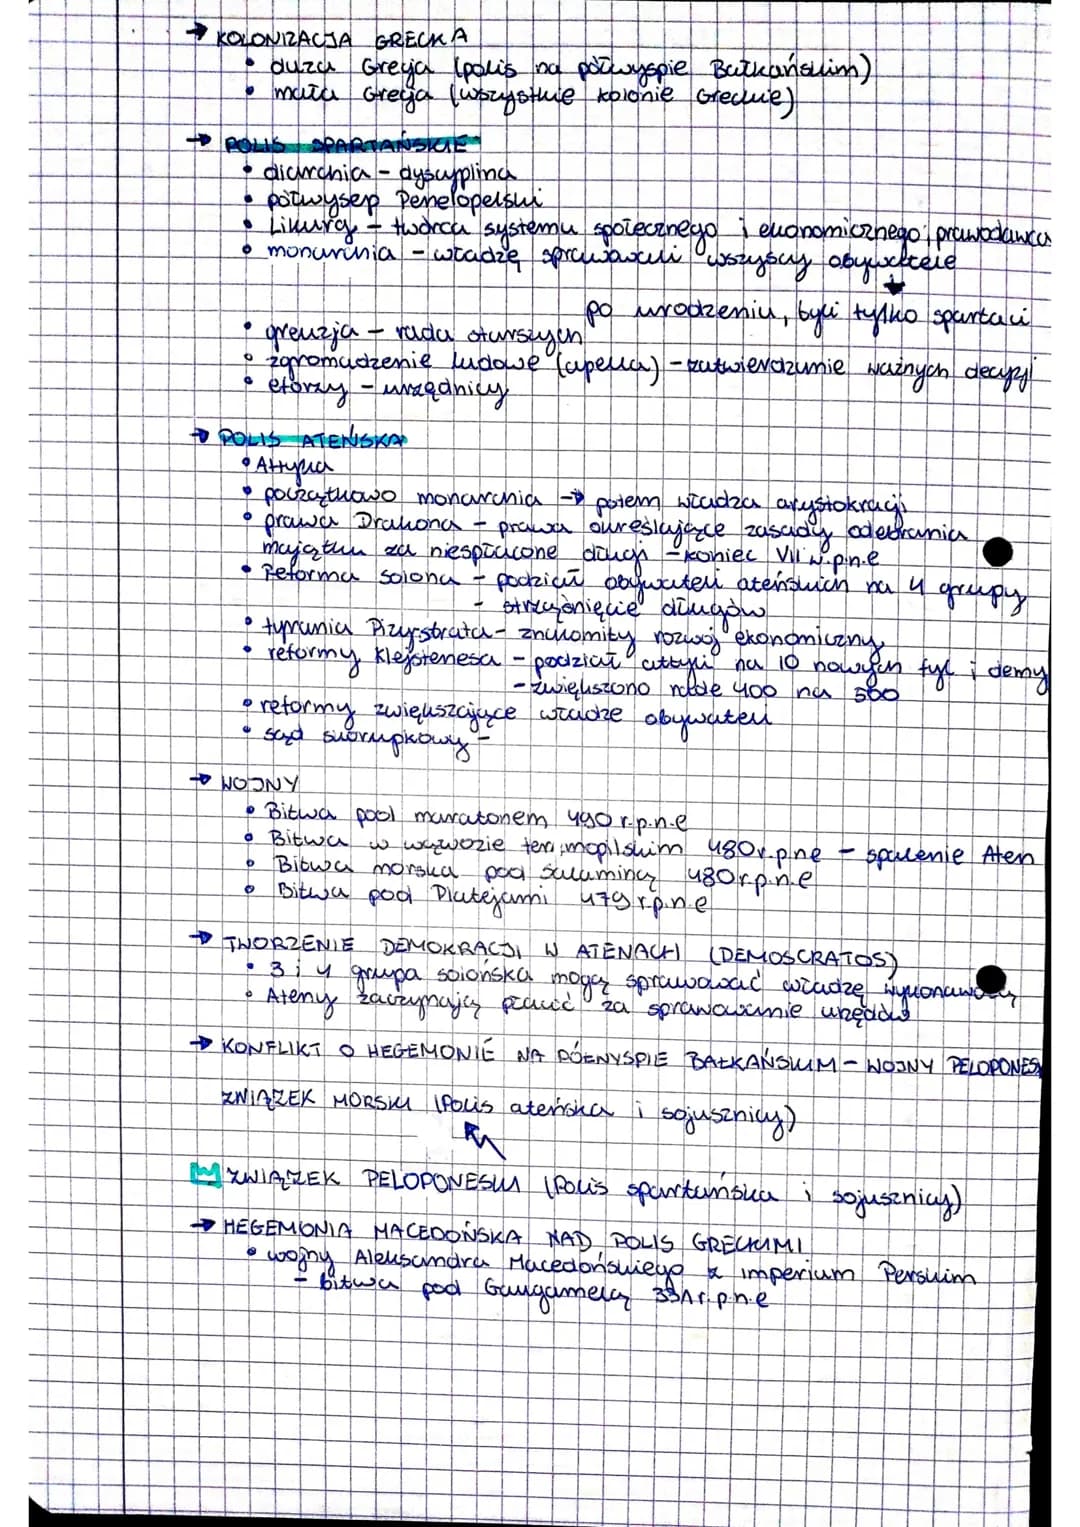 → KOLONIZACJA GRECKA
• duża Grecja (polis na półwyspie Bałkańskim)
• mała Grecja (wszystkie kolonie Greckie)
→ POLIS SPARTAŃSKIE
• diarchia - dyscyplina
• półwysep Penelopelski
• Likurg - twórca systemu społecznego i ekonomicznego, prawodawca
• monarchia - władzę sprawowali wszyscy obywatele
↓
po urodzeniu, byli tylko spartaci
• greuzja - rada starszych
• zgromadzenie ludowe (apella) - zatwierdzanie ważnych decyzji
• eforzy - urzędnicy
→ POLIS ATEŃSKA
• Attyka
• początkowo monarchia → potem władza arystokracji
• prawa Drakona - prawa określające zasady odebrania
majątku za niespłacone długi - koniec VII w.p.n.e
• reforma solona - podział obywateli ateńskich na 4 grupy
- strząśnięcie długów
• tyrania Pizystrata - znakomity rozwój ekonomiczny
• reformy Klejstenesa - podział attyki na 10 nowych fyl i demy
- zwiększono radę 400 na 500
• reformy zwiększające władze obywateli
• sąd skorupkowy -
→ WOJNY
• Bitwa pod maratonem 490 r.p.n.e
• Bitwa w wąwozie termopilskim 480r.pne - spalenie Aten
• Bitwa morska pod Salaminą 480r.p.n.e
• Bitwa pod Platejami 479 r.p.n.e
→ TWORZENIE DEMOKRACJI W ATENACH (DEMOSCRATOS)
• 3 i 4 grupa solońska mogą sprawować władzę wykonawczą
• Ateny zaczynają płacić za sprawowanie urzędów
→ KONFLIKT O HEGEMONIĘ NA PÓŁWYSPIE BAŁKAŃSKIM - WOJNY PELOPONES
ZWIĄZEK MORSKI (Polis ateńska i sojusznicy)
ZWIĄZEK PELOPONESKI (Polis spartańska i sojusznicy)
→ HEGEMONIA MACEDOŃSKA NAD POLIS GRECKIMI
• wojny Aleksandra Macedońskiego z imperium Perskim
- bitwa pod Gaugamelą 331 r.p.n.e